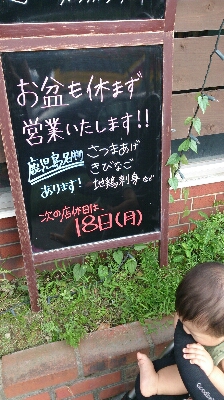 お盆も休まず
営業いたします!!
鹿児島名物
あります!
さつまあげ
きびなご
地鶏刺身など
次の店休日は、
18日(月)